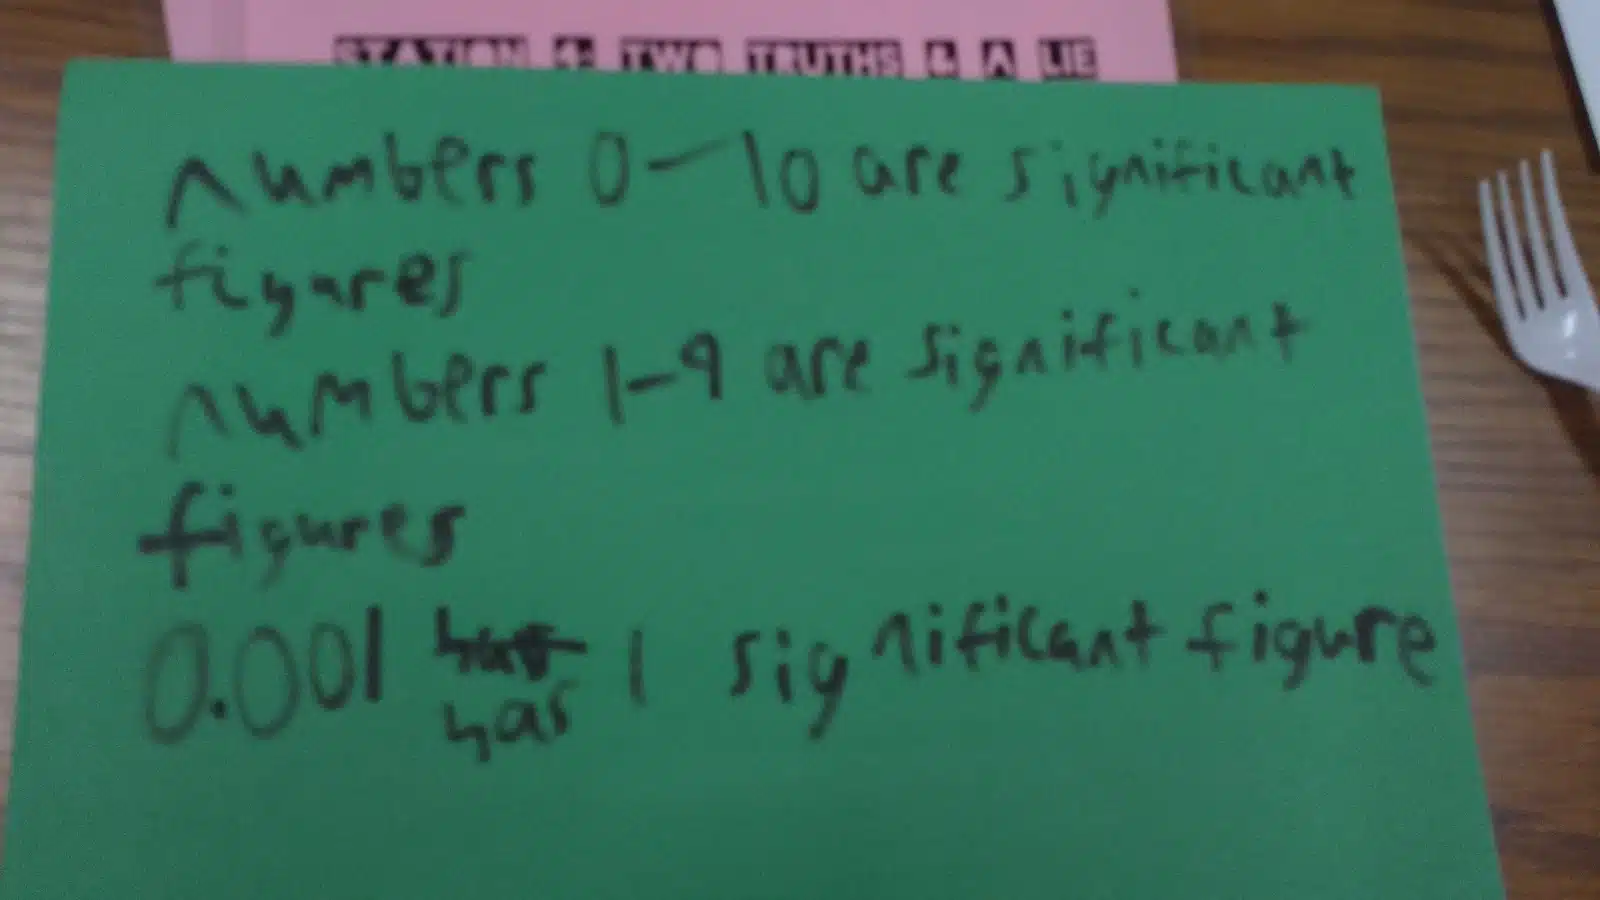 STATION 4: TWO TRUTHS & A LIE
numbers 0-10 are significant
figures
numbers 1-9 are significant
figures
0.001 has 1 significant figure